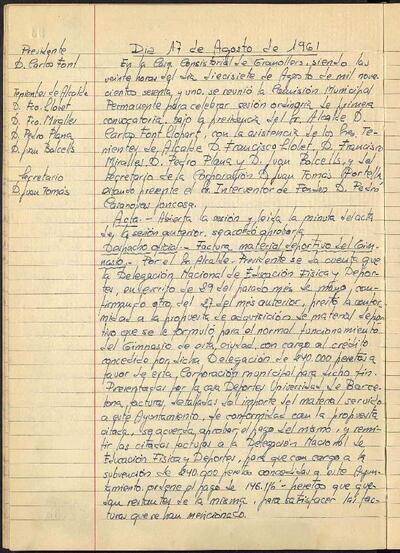 Dia 17 de Agosto de 1961
Presidente
D. Carlos Font
Tenientes de Alcalde
D. Fco. Llobet
D. Fco. Miralles
D. Pedro Plana
D. Juan Balcells
Secretario
D. Juan Tomás
En la Casa Consistorial de Granollers, siendo las
veinte horas del dia diecisiete de Agosto de mil nove-
cientos sesenta y uno, se reunió la Comisión Municipal
Permanente para celebrar sesión ordinaria de primera
convocatoria, bajo la presidencia del Sr. Alcalde D.
Carlos Font Llopart, con la asistencia de los Sres. Te-
nientes de Alcalde D. Francisco Llobet, D. Francisco
Miralles, D. Pedro Plana y D. Juan Balcells, y del
Secretario de la Corporación D. Juan Tomás Portella
estando presente el Sr. Interventor de Fondos D. Pedro
Casanovas
Acta.- Abierta la sesión y leida la minuta del acta
de la sesión anterior, se acordó aprobarla.
Despacho oficial.- Factura material deportivo del Gim-
nasio.- Por el Sr. Alcalde-Presidente se da cuenta que
la Delegación Nacional de Educación Física y Depor-
tes, en escrito de 29 del pasado mes de mayo, con-
firmando otro del 27 del mes anterior, prestó la confor-
midad a la propuesta de adquisición de material depor-
tivo que se le formuló para el normal funcionamiento
del Gimnasio de esta ciudad, con cargo al crédito
concedido por dicha Delegación de 640.000 pesetas a
favor de esta Corporación municipal para dicho fin.
Presentadas por la casa Deportes Universidad de Barce-
lona, facturas detalladas del importe del material servido
a este Ayuntamiento, de conformidad con la propuesta
citada, se acuerda aprobar el pago del mismo, y remi-
tir las citadas facturas a la Delegación Nacional de
Educación Física y Deportes, para que con cargo a la
subvención de 640.000 pesetas concedidas a este Ayun-
tamiento, ordene el pago de pesetas que que-
dan restantes de la misma, para satisfacer las fac-
turas que se han mencionado.